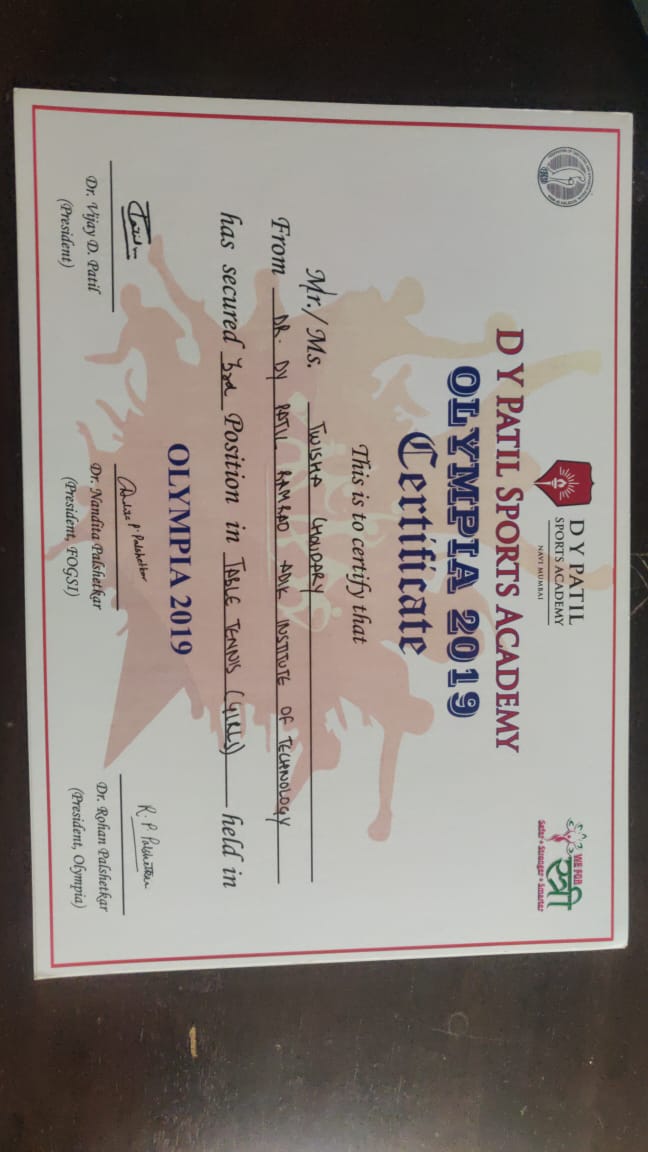 D Y PATIL
SPORTS ACADEMY
NAVI MUMBAI
WE FOR
स्त्री
Safer • Stronger • Smarter
D Y PATIL SPORTS ACADEMY
OLYMPIA 2019
Certificate
This is to certify that
Mr./ Ms. TWISHA CHOUDARY
From DR. DY PATIL RAMRAO ADIK INSTITUTE OF TECHNOLOGY
has secured 3rd Position in TABLE TENNIS (GIRLS) held in
OLYMPIA 2019
R. P. Palshetkar
Dr. Vijay D. Patil
(President)
Dr. Nandita Palshetkar
(President, FOGSI)
Dr. Rohan Palshetkar
(President, Olympia)